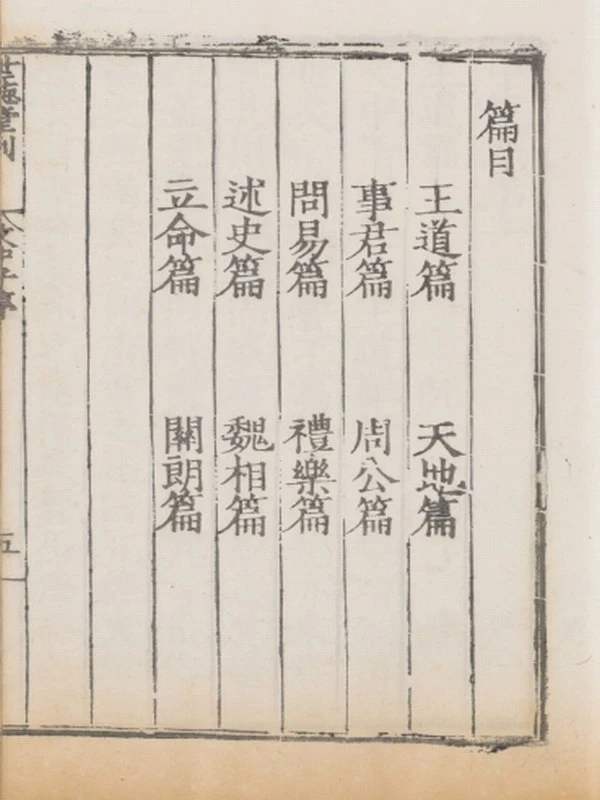 篇目
王道篇 天地篇
事君篇 周公篇
問易篇 禮樂篇
述史篇 魏相篇
立命篇 關朗篇
世德堂刊 文中子序 五